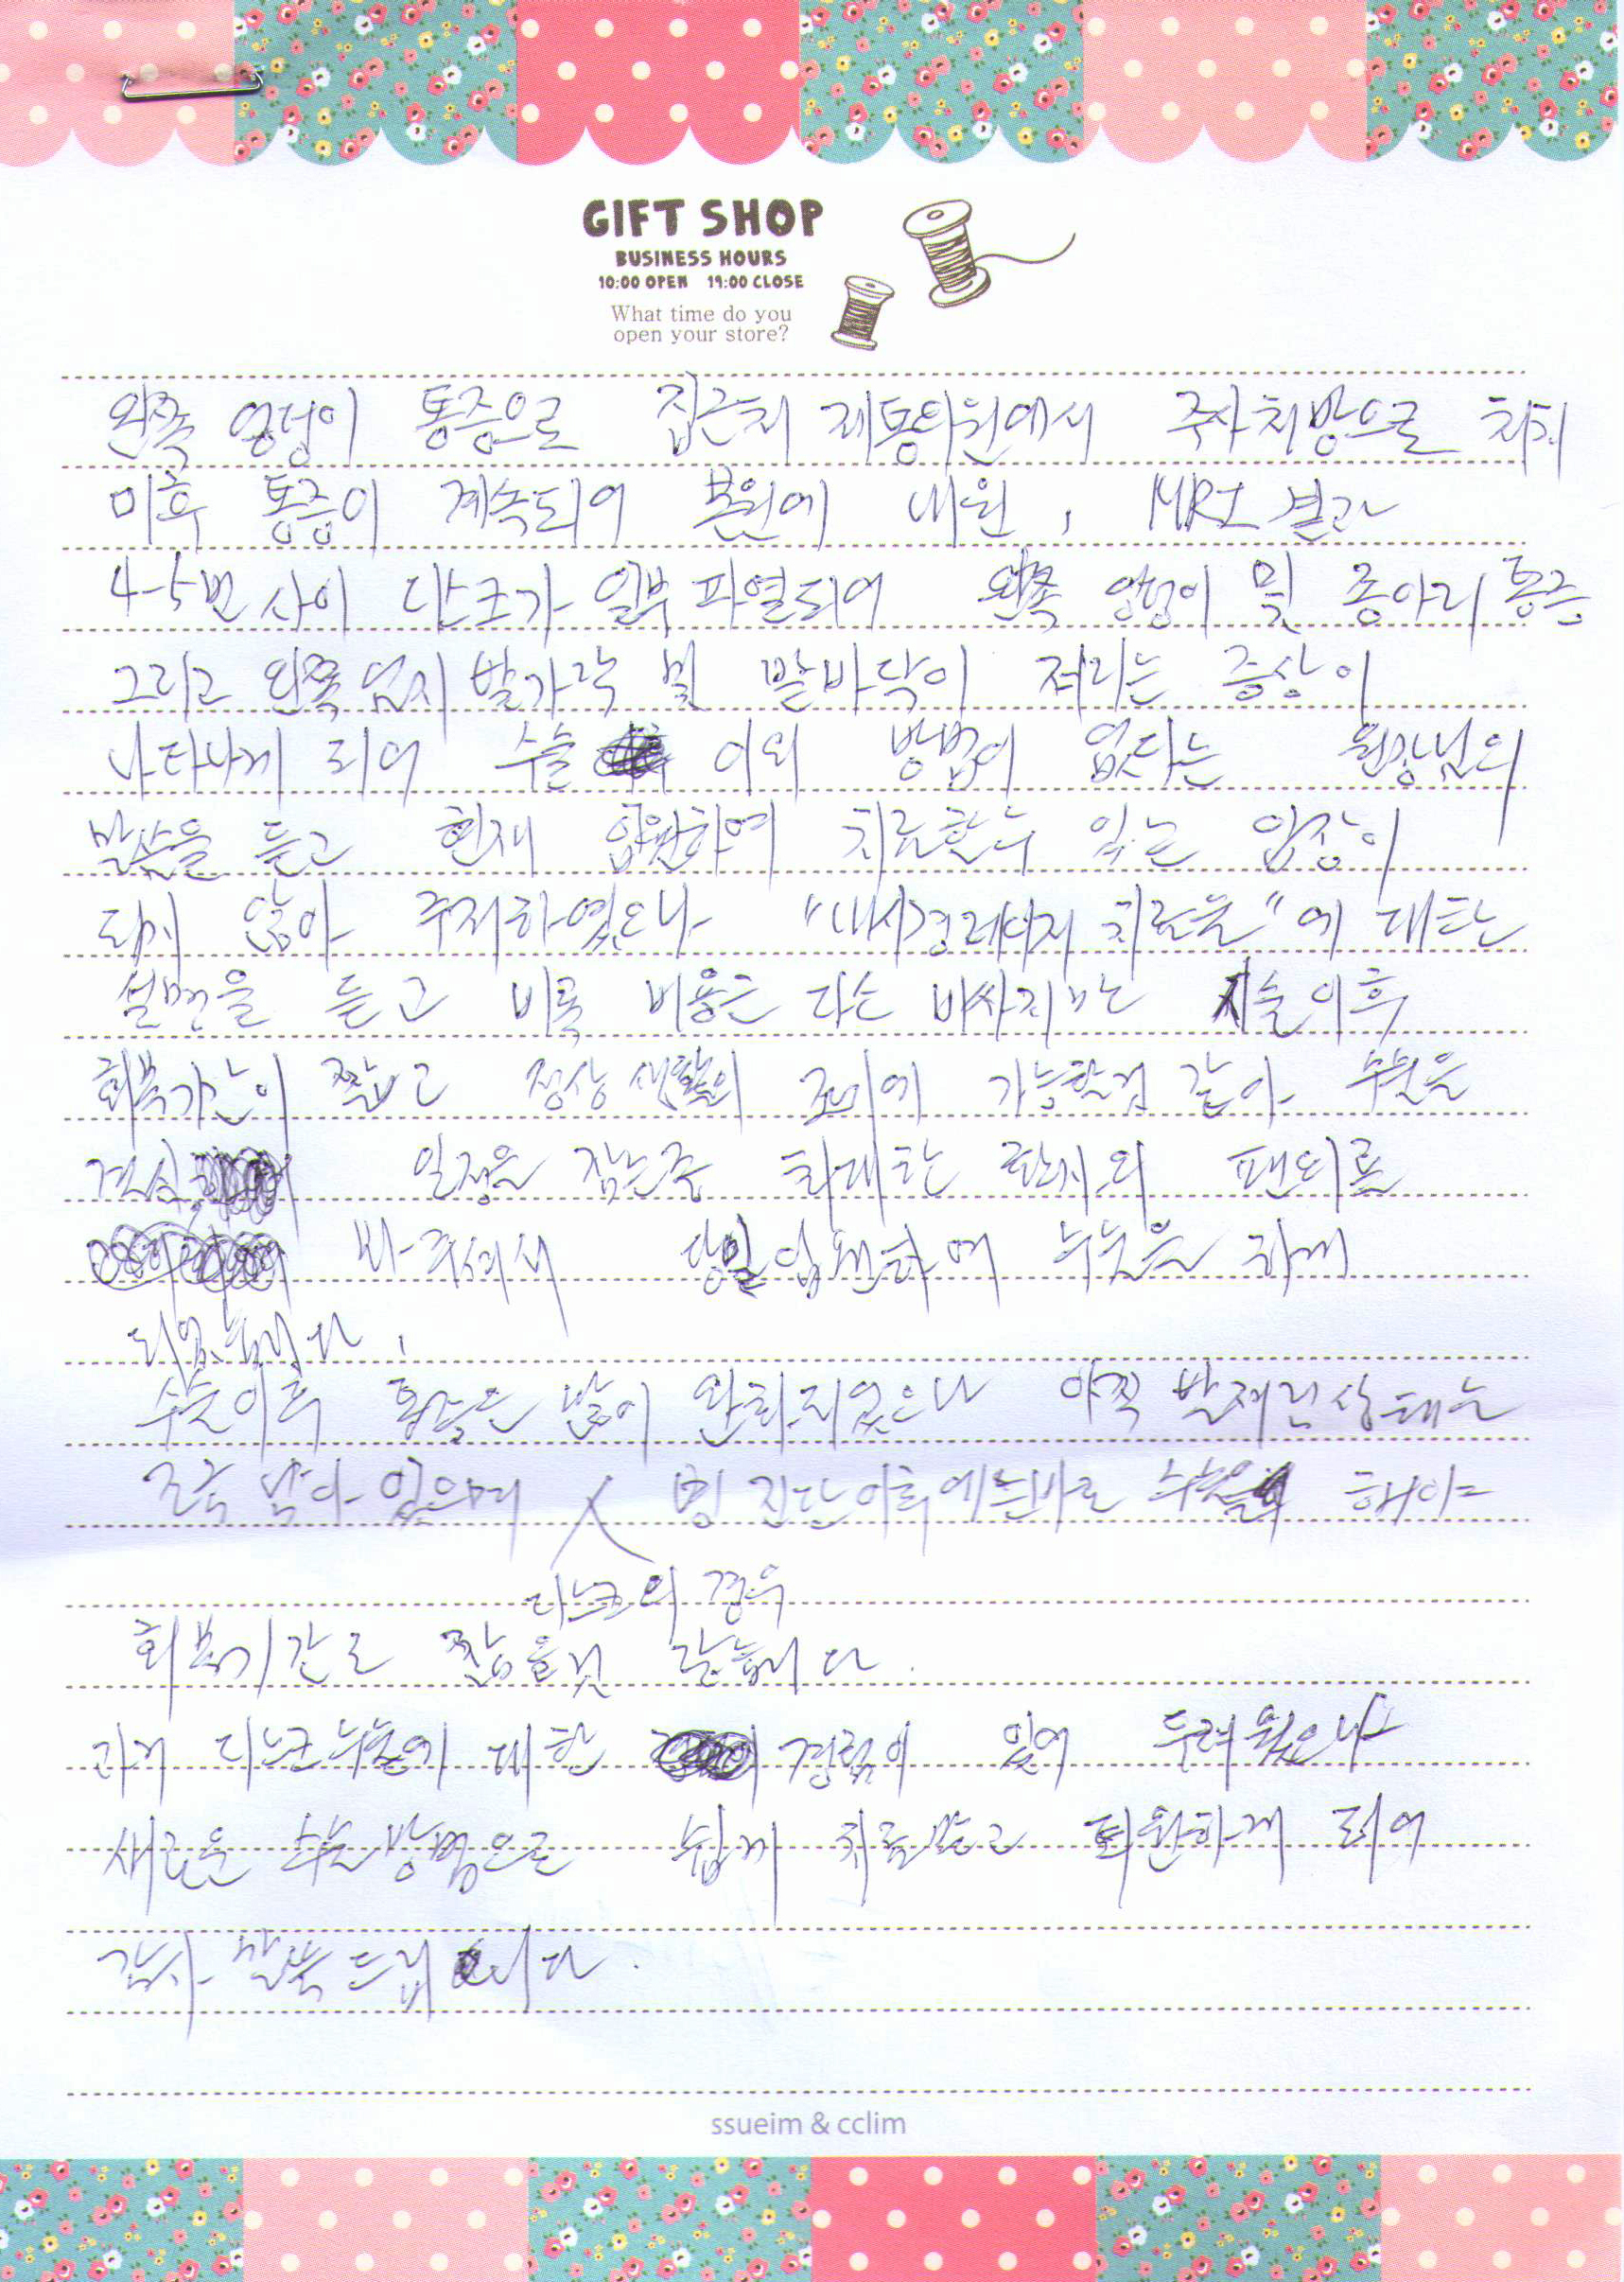 GIFT SHOP
BUSINESS HOURS
10:00 OPEN 19:00 CLOSE
What time do you
open your store?
왼쪽 엉덩이 통증으로 집근처 제통의원에서 주사처방으로 처치
이후 통증이 계속되어 본원에 내원, MRI 결과
4-5번 사이 디스크가 일부 파열되어 왼쪽 엉덩이 및 종아리 통증
그리고 왼쪽 엄지 발가락 및 발바닥이 저리는 증상이
나타나게 되어 수술 이외 방법이 없다는 원장님의
말씀을 듣고 현재 입원하여 치료할수 있는 입장이
되지 않아 주저하였으나 "내시경레이저 치료술"에 대한
설명을 듣고 비록 비용은 다소 비싸지만 시술이후
회복기간이 짧고 정상 생활의 복귀가 가능할것 같아 수술을
결심 일정을 잡는중 최대한 환자의 편의를
봐주셔서 당일 입원하여 수술을 하게
되었습니다.
수술이후 통증은 많이 완화되었으나 아직 발저린 상태는
조금 남아 있으며 병 진단이후에는 바로 수술을 해야
디스크의 경우
회복기간도 짧을것 같습니다.
과거 디스크수술에 대한 경험이 있어 두려웠으나
새로운 수술방법으로 쉽게 치료받고 퇴원하게 되어
감사 말씀 드립니다.
ssueim & cclim